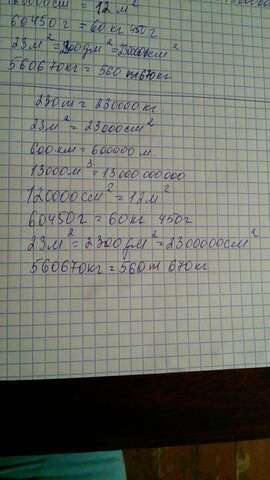 120000см² = 12м²
60450г = 60кг 450г
23м² = 2300дм² = 230000см²
560670кг = 560т 670кг
230т = 230000кг
23м² = 23000см²
600км = 600000м
13000м³ = 13000000000
120000см² = 12м²
60450г = 60кг 450г
23м² = 2300дм² = 2300000см²
560670кг = 560т 670кг